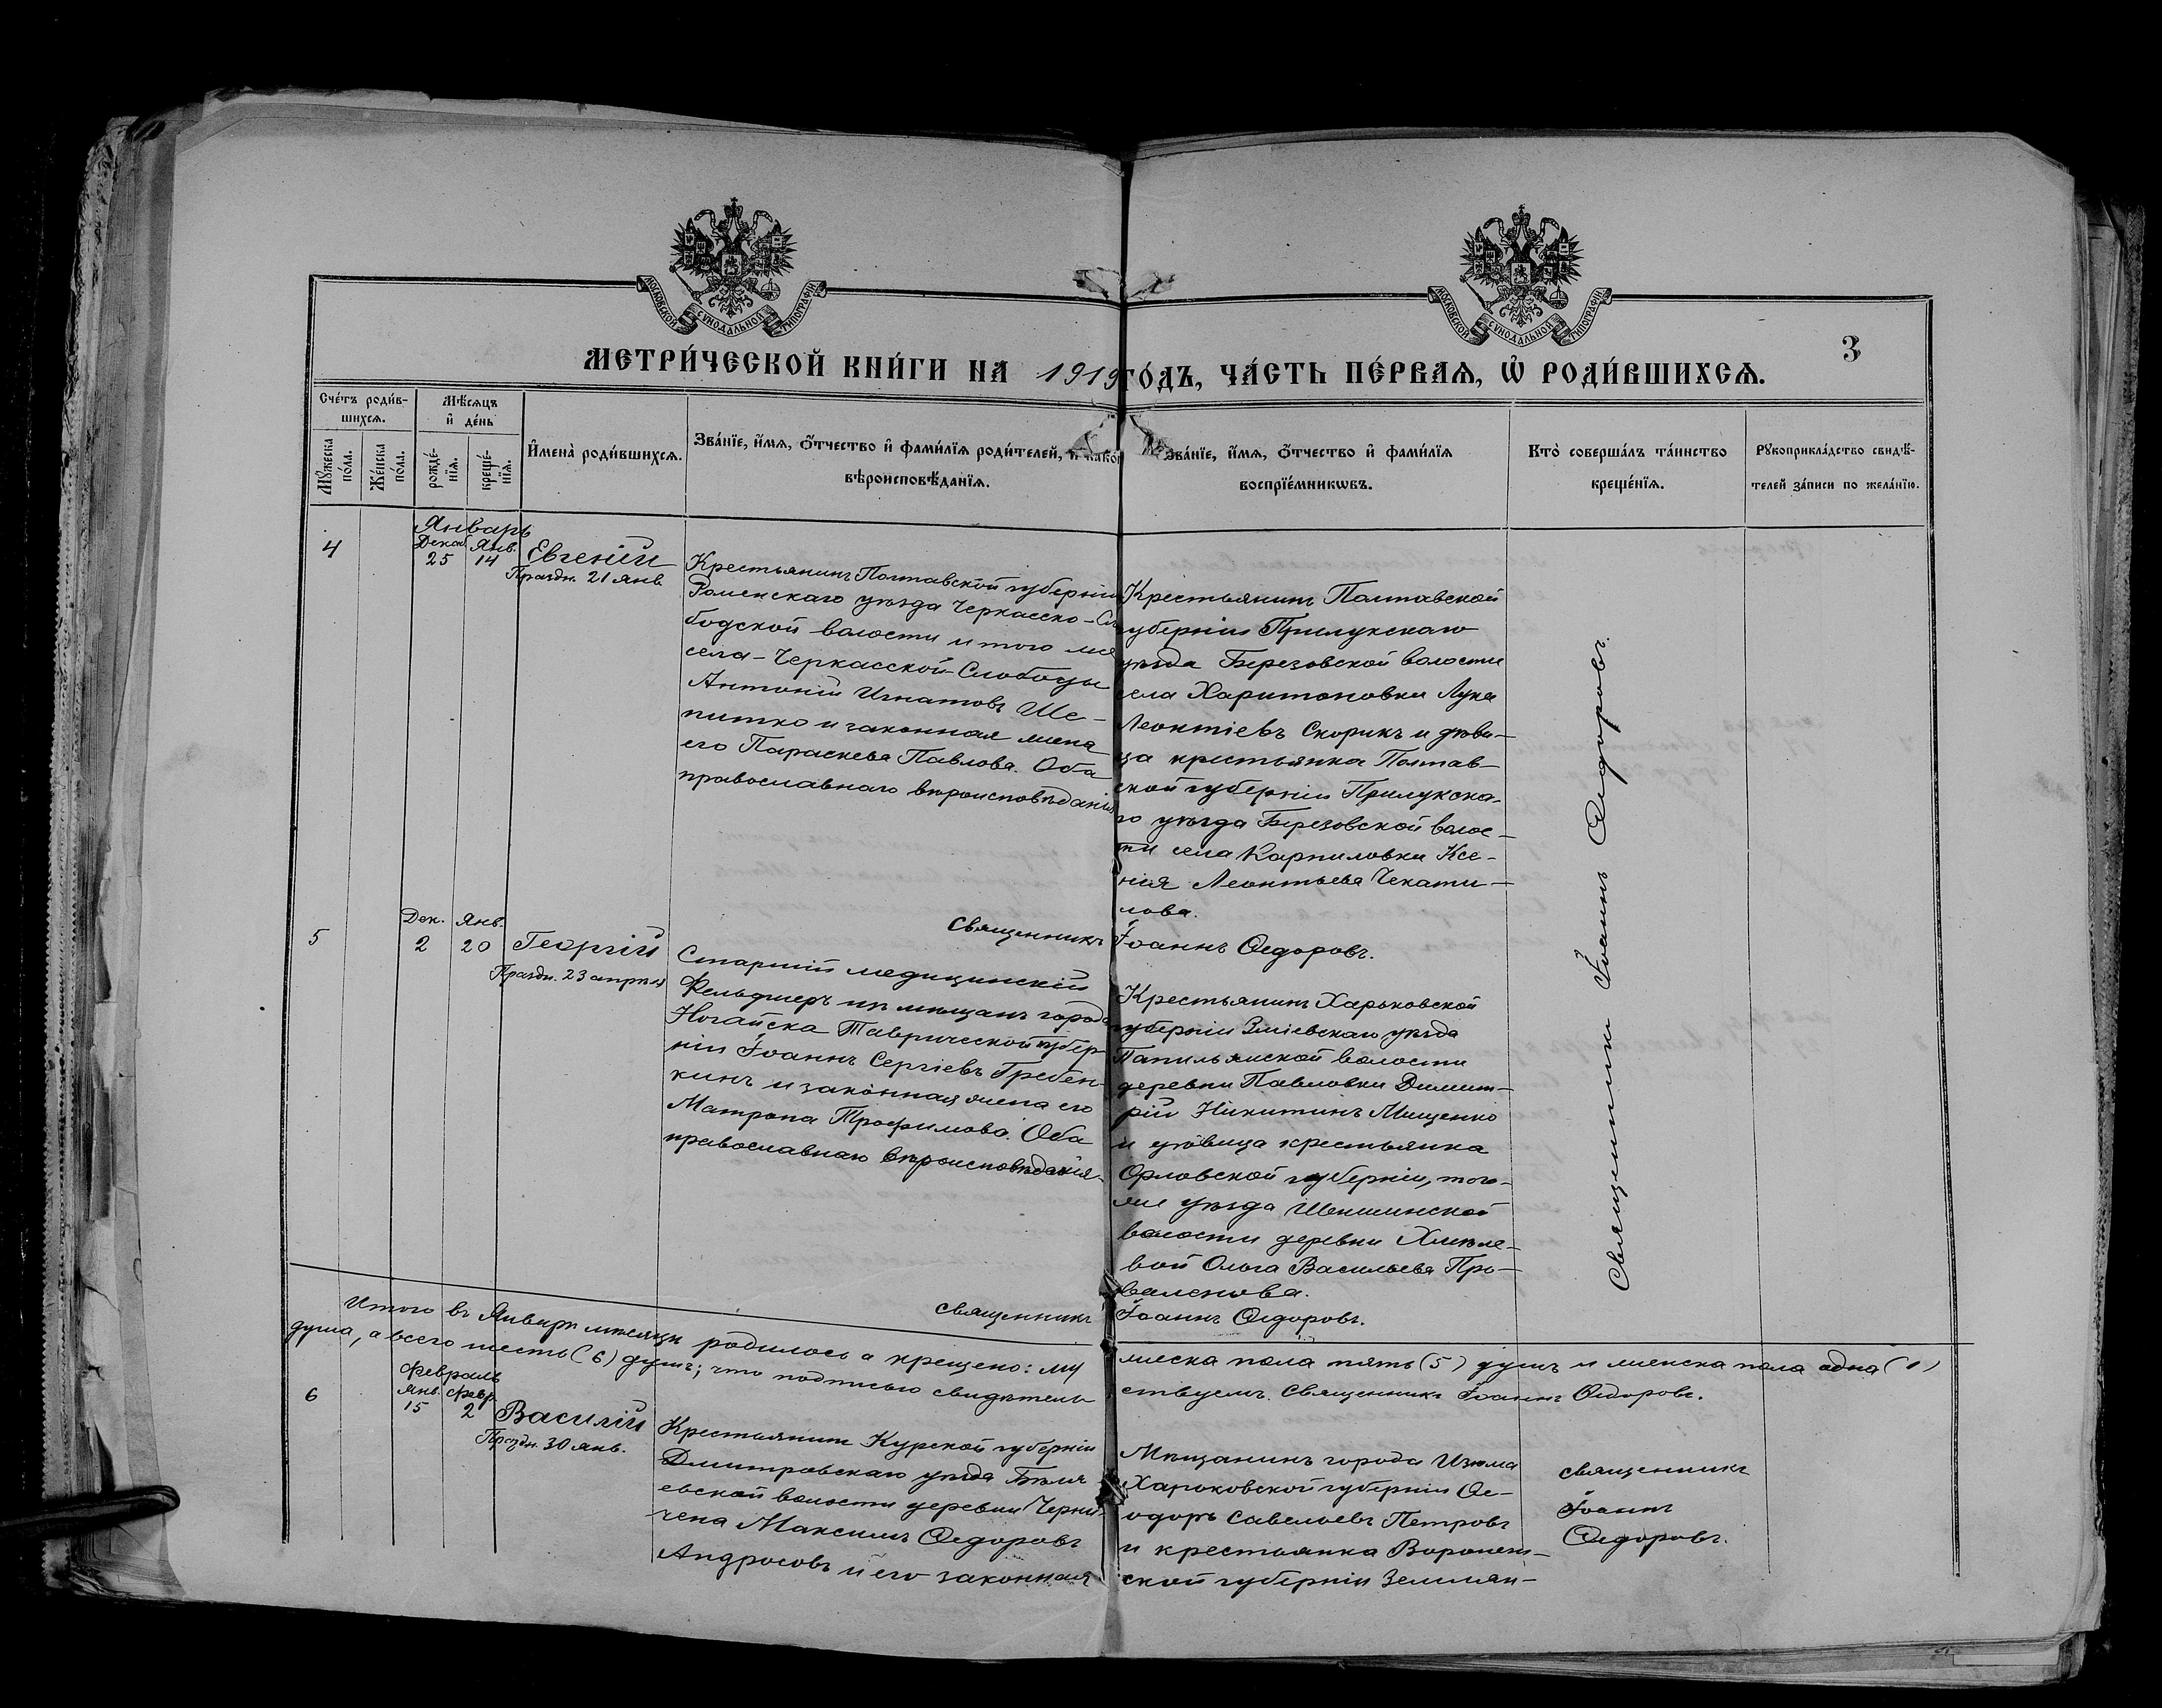 МОСКОВСКОЙ СѴНОДАЛЬНОЙ ТИПОГРАФІИ
МОСКОВСКОЙ СѴНОДАЛЬНОЙ ТИПОГРАФІИ
3
МЕТРИ́ЧЕСКОЙ КНИ́ГИ НА 1919 ГО́ДЪ, ЧА́СТЬ ПЕ́РВАЯ, Ѡ РОДИ́ВШИХСЯ.
Сче́тъ роди́в-
шихся.
Мѣ́сяцъ
и де́нь
Мꙋ́жеска
по́ла.
Же́нска
по́ла.
рожде́-
нїя.
креще́-
нїя.
Имена̀ роди́вшихся.
Зва́нїе, и́мя, ѻ́тчество и фами́лїя роди́телей, и како
вѣроисповѣ́данїя.
Зва́нїе, и́мя, ѻ́тчество и фами́лїя
воспрїе́мникѡвъ.
Кто̀ соверша́лъ та́инство
креще́нїя.
Рꙋкоприкла́дство свидѣ́-
телей за́писи по жела́нїю.
Январь
4
Декаб. Янв.
25 14
Евгеній
Праздн. 21 янв.
Крестьянинъ Полтавской губерніи
Роменскаго уѣзда Черкасско-Сло
бодской волости и того же
села - Черкасской-Слободы
Антоній Игнатовъ Ше-
питко и законная жена
его Параскева Павлова. Оба
православнаго вѣроисповѣданія
Священникъ
Крестьянинъ Полтавской
губерніи Прилукскаго
уѣзда Березовской волости
села Харитоновки Лука
Леонтіевъ Скорикъ и дѣви-
ца крестьянка Полтав-
ской губерніи Прилукска-
го уѣзда Березовской волос-
ти села Карпиловки Ксе-
нія Леонтьева Чекати-
лова.
Іоаннъ Ѳедоровъ.
Священникъ Іоаннъ Ѳедоровъ.
5
Дек. Янв.
2 20
Георгій
Праздн. 23 апрѣля
Старшій медицинскій
Фельдшеръ изъ мѣщанъ города
Ногайска Таврической губер-
ніи Іоаннъ Сергіевъ Гребен-
кинъ и законная жена его
Матрона Трофимова. Оба
православнаго вѣроисповѣданія.
Священникъ
Крестьянинъ Харьковской
губерніи Зміевскаго уѣзда
волости
деревни Павловки Димит-
рій Никитинъ Мищенко
и дѣвица крестьянка
Орловской губерніи, того-
же уѣзда Шеншинской
волости деревни Хмѣле-
вой Ольга Васильева Про-
валенова.
Іоаннъ Ѳедоровъ.
Итого въ Январѣ мѣсяцѣ родилось а крещено: му жеска пола пять (5) душъ и женска пола одна (1)
душа, а всего шесть (6) душъ; что подписью свидѣтель ствуемъ. Священникъ Іоаннъ Ѳедоровъ.
Февраль
6
Янв. Февр.
15 2
Василій
Праздн. 30 янв.
Крестьянинъ Курской губерніи
Дмитровскаго уѣзда Бѣля
евской волости деревни Черни-
чена Максимъ Ѳедоровъ
Андросовъ и его законная
Мѣщанинъ города Изюма
Харьковской губерніи Ѳе-
одоръ Савельевъ Петровъ
и крестьянка Воронеж-
ской губерніи Землян-
священникъ
Іоаннъ
Ѳедоровъ.